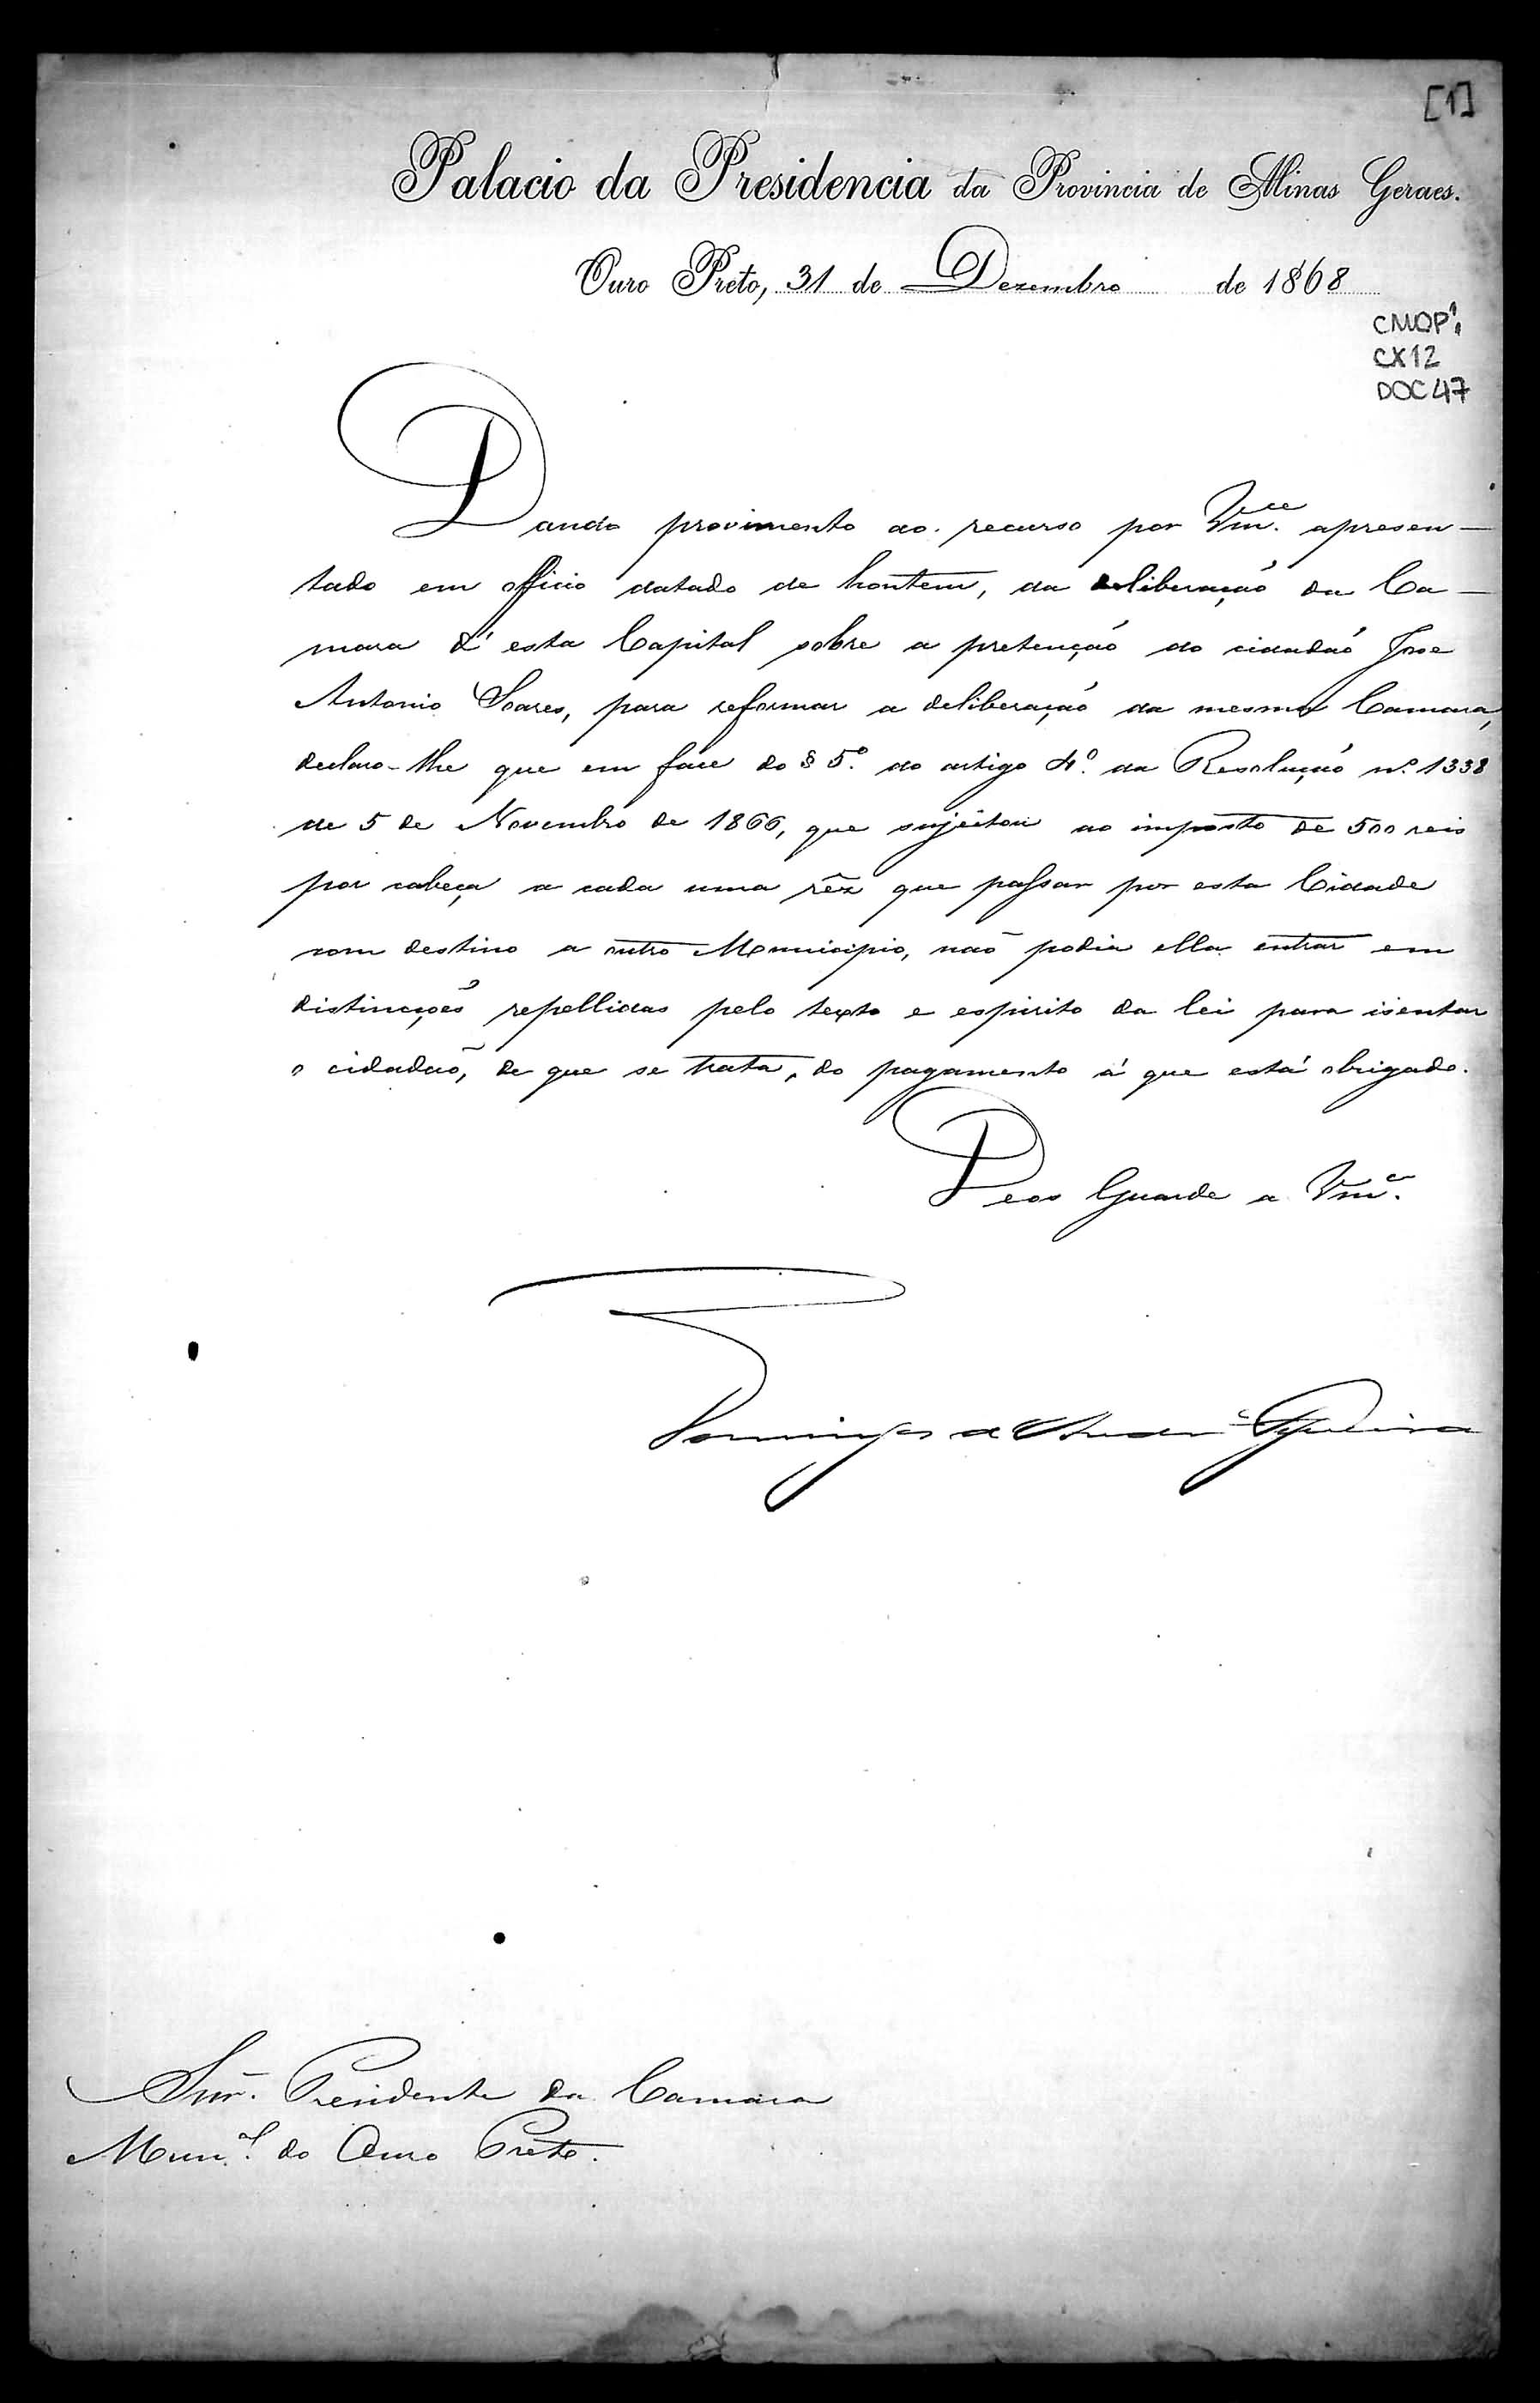 [1]
Palacio da Presidencia da Provincia de Minas Geraes.
Ouro Preto, 31 de Dezembro de 1868
CMOP'1
CX12
DOC 47
Dando provimento ao recurso por Vm.ce apresen-
tado em officio datado de hontem, da deliberação da Ca-
mara d'esta Capital sobre a pretenção do cidadão Jose
Antonio Soares, para reformar a deliberação da mesma Camara,
declaro-lhe que em face do § 5º. do artigo 4º. da Resolução nº. 1338
de 5 de Novembro de 1866, que sujeitou ao imposto de 500 reis
por cabeça a cada uma rêz que passar por esta Cidade
com destino a outro Municipio, não podia ella entrar em
distincções repellidas pelo texto e espirito da lei para isentar
o cidadão, de que se trata, do pagamento á que está obrigado.
Deos Guarde a Vm.ce
Domingos de Andr.e Figueira
Snr. Presidente da Camara
Mun.al do Ouro Preto.